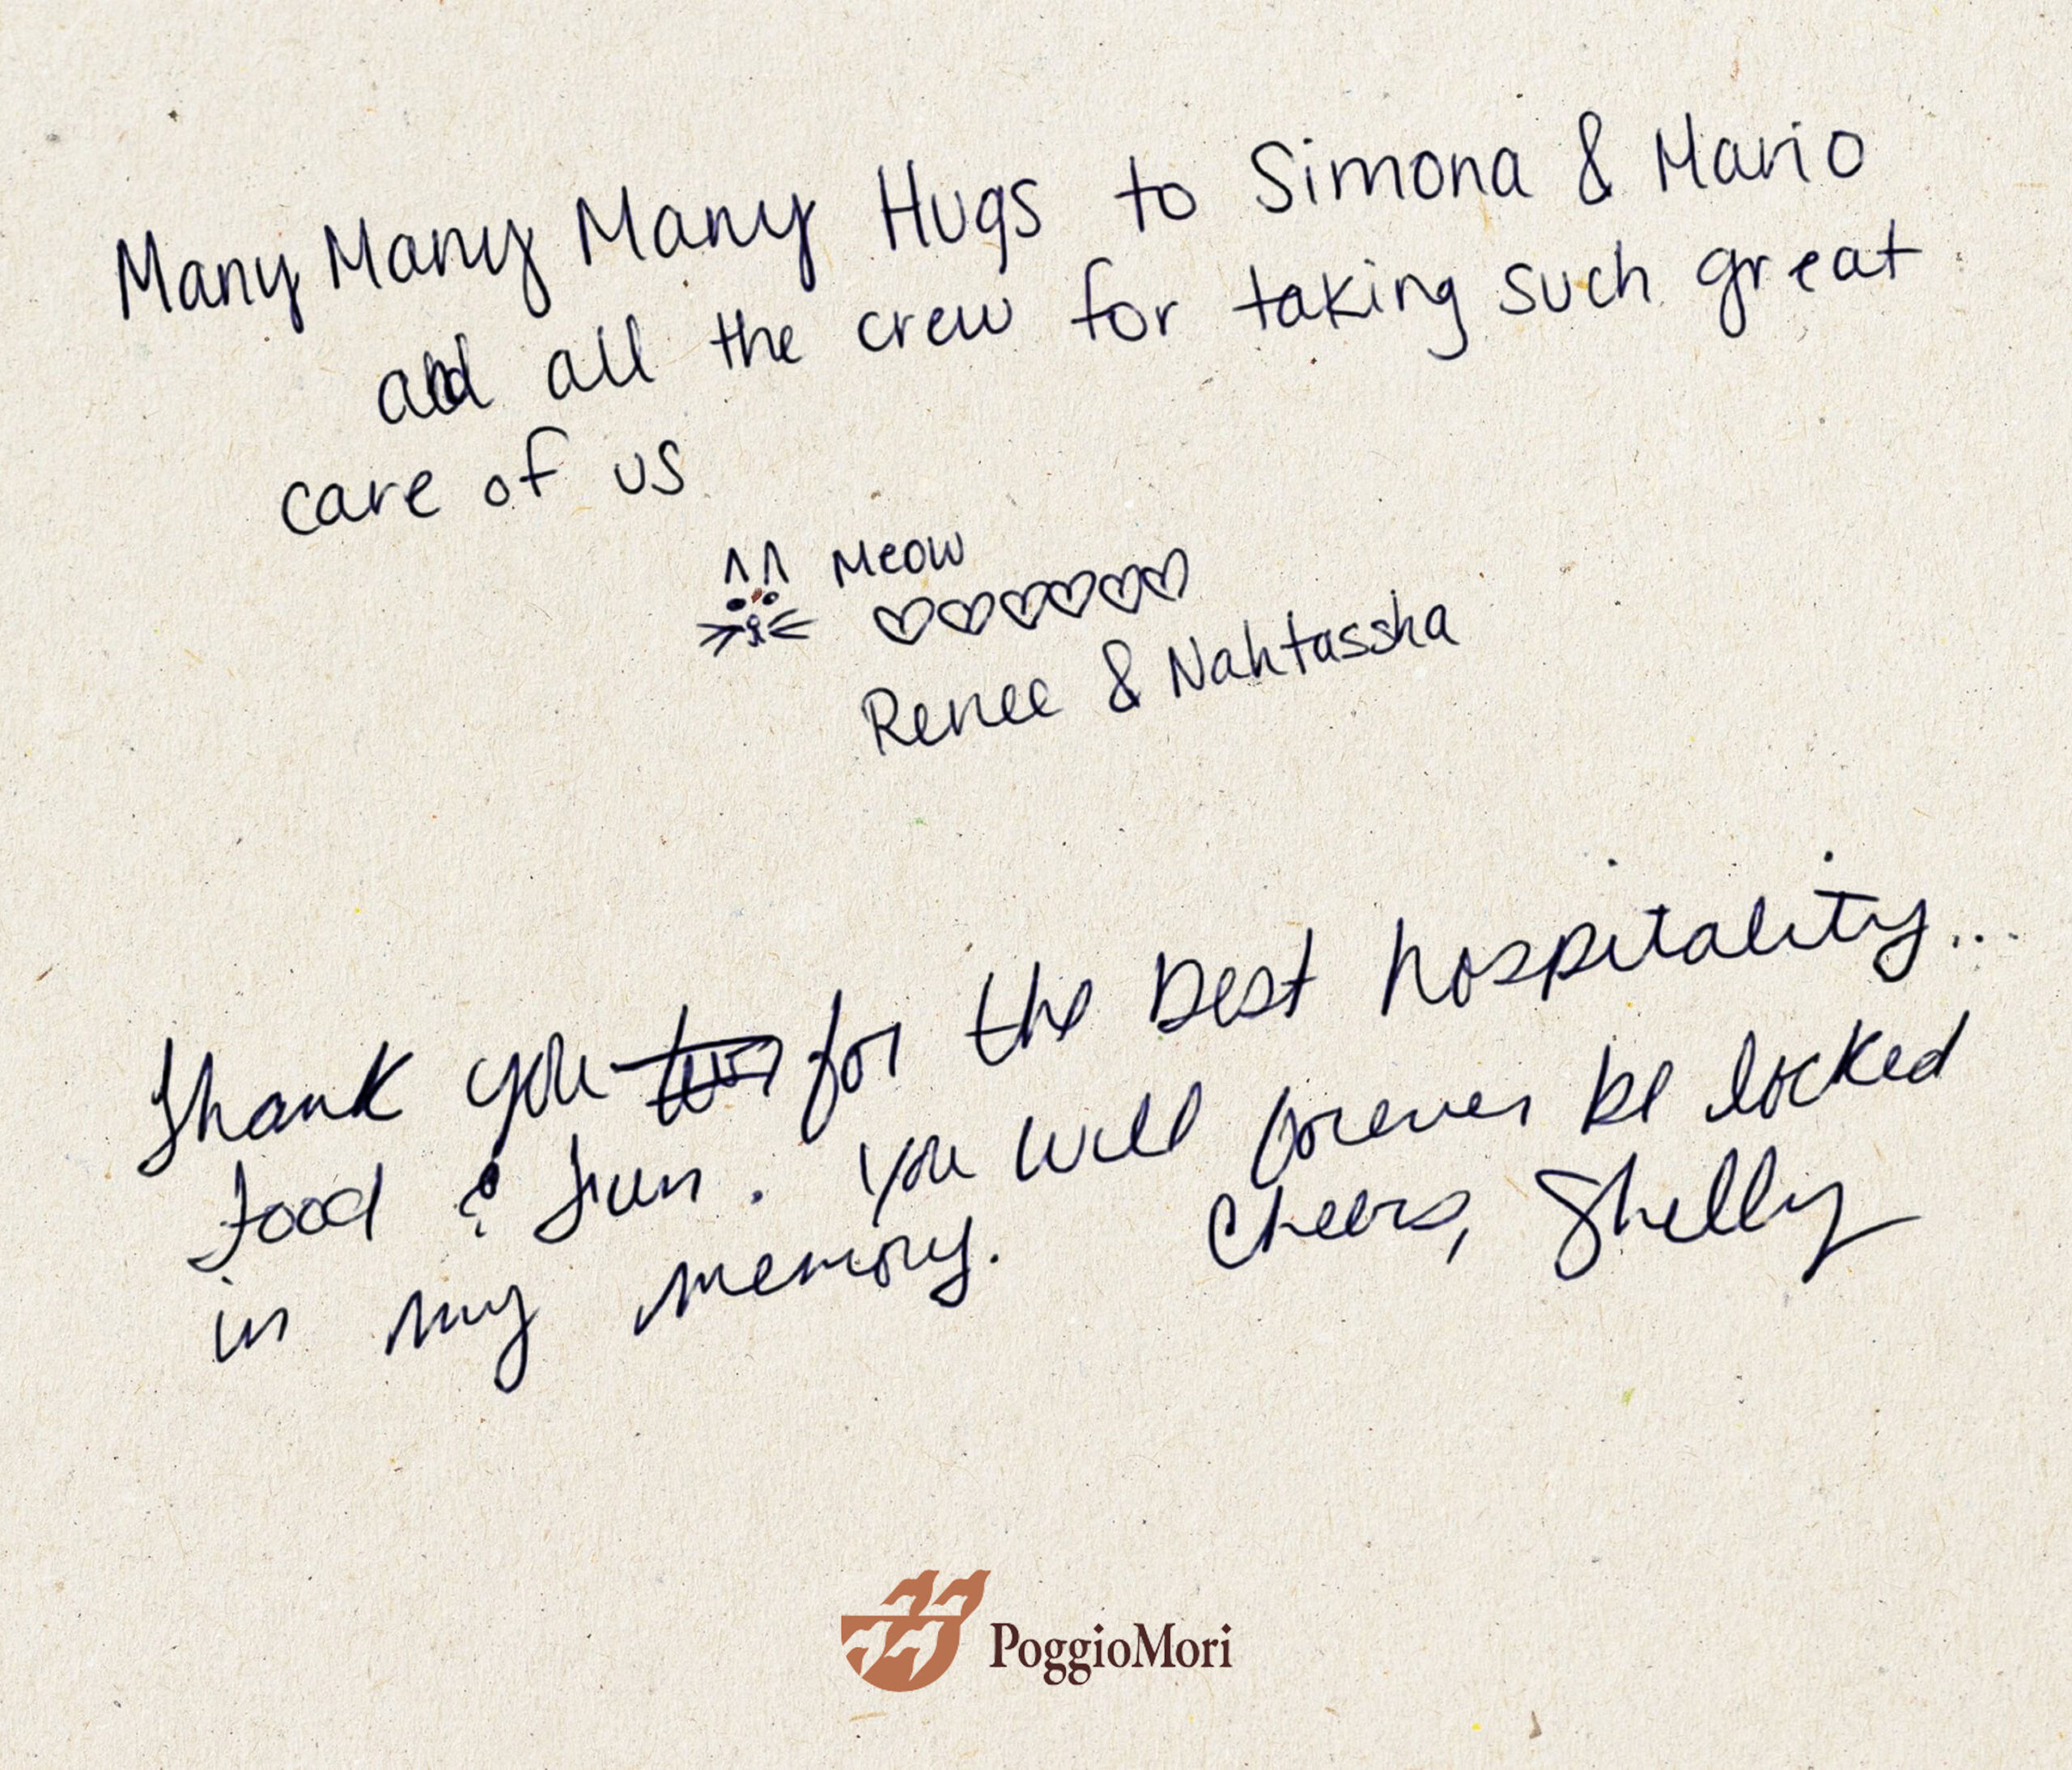 Many Many Many Hugs to Simona & Mario
and all the crew for taking such great
care of us
Meow
♡♡♡♡♡♡
Renee & Nahtassha
Thank you for the best hospitality...
food & fun. You will forever be locked
in my memory. Cheers, Shelly
PoggioMori